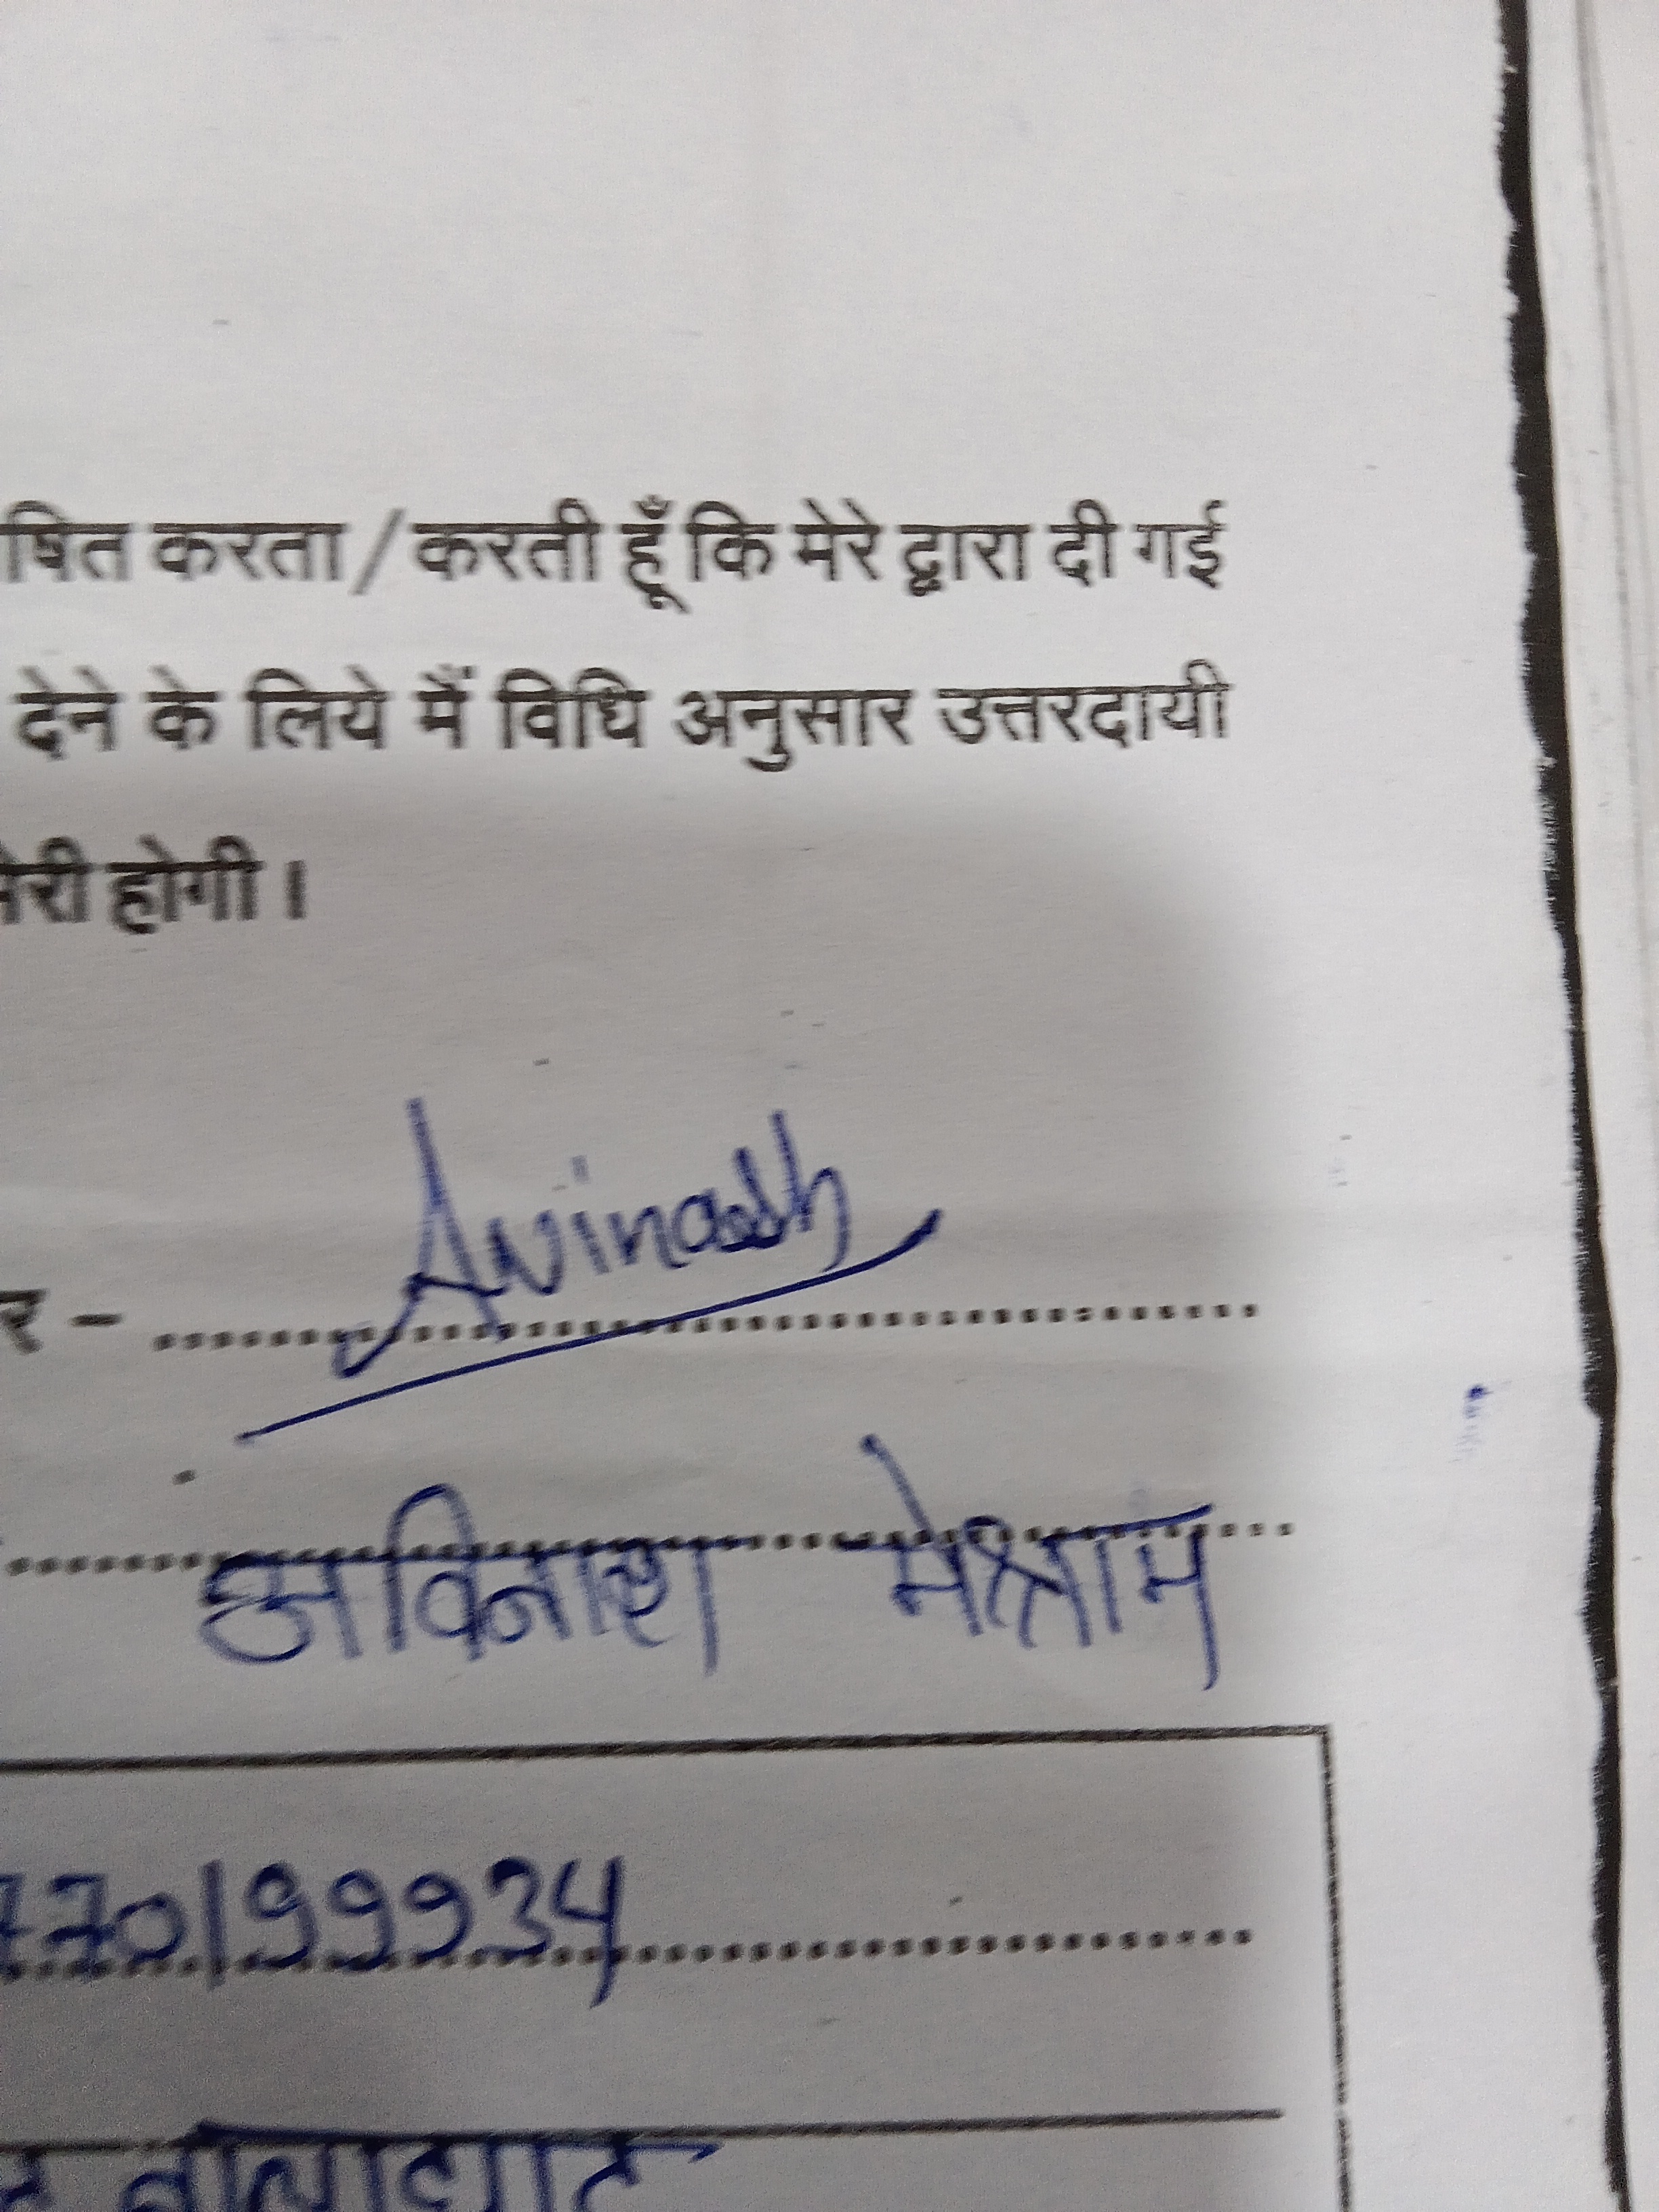 षित करता / करती हूँ कि मेरे द्वारा दी गई
देने के लिये मैं विधि अनुसार उत्तरदायी
मेरी होगी।
र – Avinash
अविनाश मेश्राम
770199934
बालाघाट